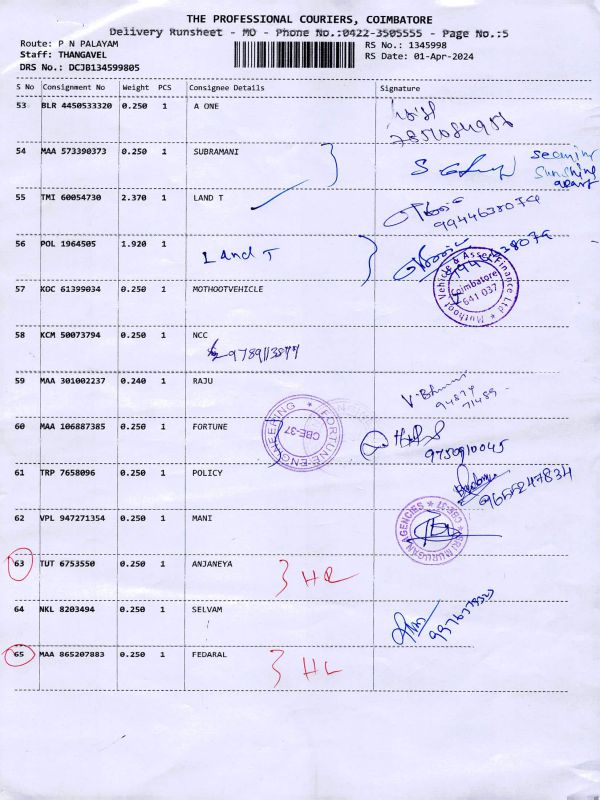 THE PROFESSIONAL COURIERS, COIMBATORE
Delivery Runsheet - MO - Phone No.:0422-3505555 - Page No.:5
Route: P N PALAYAM
RS No.: 1345998
Staff: THANGAVEL
RS Date: 01-Apr-2024
DRS No.: DCJB134599805
S No Consignment No Weight PCS Consignee Details Signature
53 BLR 4450533320 0.250 1 A ONE
54 MAA 573390373 0.250 1 SUBRAMANI
Sunshine
55 TMI 60054730 2.370 1 LAND T
9944638079
56 POL 1964505 1.920 1
Land T
57 KOC 61399034 0.250 1 MOTHOOTVEHICLE
Muthoot Vehicle & Asset Finance Ltd *
Coimbatore
641 037
58 KCM 50073794 0.250 1 NCC
59 MAA 301002237 0.240 1 RAJU
94874
71489
60 MAA 106887385 0.250 1 FORTUNE
* FORTUNE ENGINEERING
CBE-37
9750910045
61 TRP 7658096 0.250 1 POLICY
9655247834
62 VPL 947271354 0.250 1 MANI
* SRI MURUGAN AGENCIES * CBE-37
63 TUT 6753550 0.250 1 ANJANEYA
64 NKL 8203494 0.250 1 SELVAM
65 MAA 865207883 0.250 1 FEDARAL